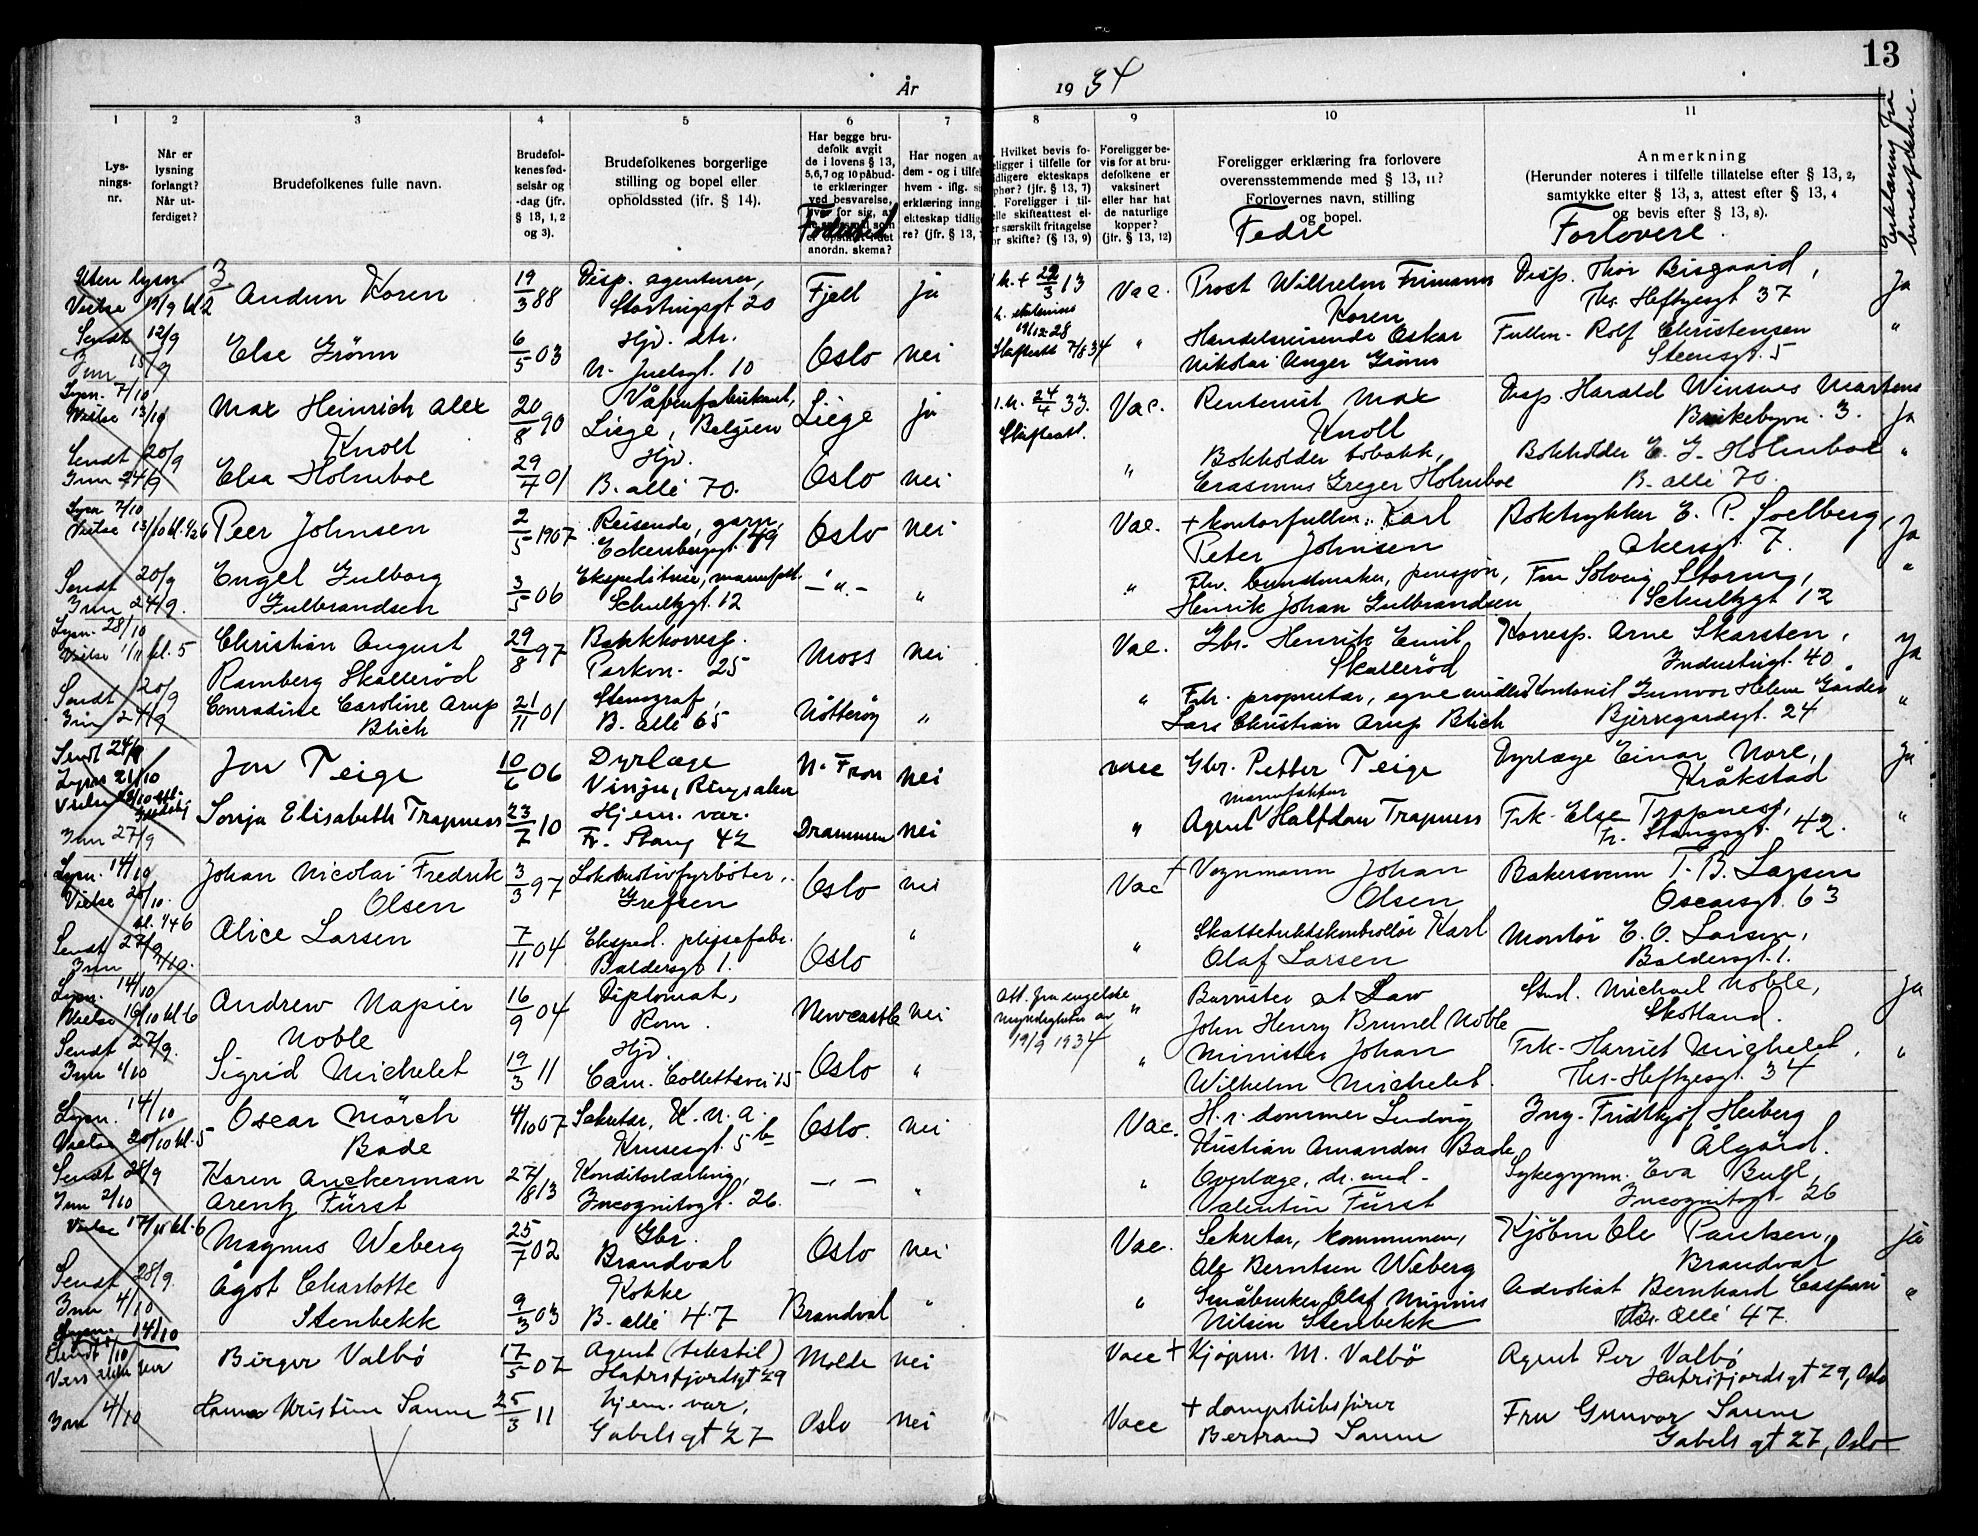 13
År
19 34
1
2
3
4
5
6
7
8
9
10
11
Lys-
nings-
nr.
Når er
lysning
forlangt?
Når ut-
ferdiget?
Brudefolkenes fulle navn.
Brudefol-
kenes fød-
selsår og
-dag (jfr.
§ 13, 1, 2
og 3).
Brudefolkenes borgerlige
stilling og bopel eller
opholdssted (jfr. § 14).
Har begge bru-
defolk avgit
de i lovens § 13,
5,6,7 og 10 påbud-
te erklæringer
ved besvarelse,
Fødested
anordn. skema?
Har nogen av
dem - og i tilfelle
hvem - iflg. si
erklæring inngå
ekteskap tidlig
re? (jfr. § 13,
Hvilket bevis fo-
religger i tilfelle for
tidligere ekteskaps
ophør? (jfr. § 13, 7)
Foreligger i til-
felle skifteattest el-
ler særskilt fritagelse
for skifte? (§ 13, 9)
Foreligger be-
vis for at bru-
defolkene er
vaksinert
eller har hat
de naturlige
kopper?
(jfr. § 13, 12)
Foreligger erklæring fra forlovere
overensstemmende med § 13, 11?
Forlovernes navn, stilling
og bopel.
Fedre
Anmerkning
(Herunder noteres i tilfelle tillatelse efter § 13, 2,
samtykke efter § 13, 3, attest efter § 13, 4
og bevis efter § 13, 8).
Forlovere
Erklæring fra
brudefolkene.
Uten lysn.
Vielse 13/9 kl 2
Sendt 12/9
Inn 15/9
3
Audun Koren
19/3 88
Disp. agenturer,
Stortingsgt 20
Fjell
ja
1. h. + 22/3 13
Vac.
Prost Wilhelm Frimann
Koren
Disp. Thor Bisgaard,
Ths. Heftyesgt 37
Ja
Else Grönn
6/5 03
Hjv. str.
N. Juelsgt. 10
Oslo
nei
19/12-28
Skifteatt 7/8 34
"
Handelsreisende Oskar
Nikolai Unger Grönn
Fullm. Rolf Christensen
Steensgt. 5
"
Lysn. 7/10
Vielse 13/10
Sendt 20/9
Inn 24/9
Max Heinrich Alex
Knoll
20/8 90
Våbenfabrikant,
Liege, Belgien
Liege
ja
1. h. 24/4 33.
Skifteatt.
Vac.
Rentenist Max
Knoll
Disp. Harald Winsnes Martens
Birkebyvn. 3.
Ja
Elsa Holmboe
29/7 01
Hjv.
B. allé 70.
Oslo
nei
"
Bokholder tobakk,
Erasmus Greger Holmboe
Bokholder E. G. Holmboe
B. allé 70.
"
Lysn 7/10
Vielse 13/10 kl. 1/2 6
Sendt 20/9
Inn 24/9.
Peer Johnsen
2/5 1907
Reisende, garn,
Eckersbergsgt. 49
Oslo
nei
Vac.
+ kontorfullm. Karl
Peter Johnsen
Boktrykker E. P. Soelberg,
Akersgt 7.
Ja
Engel Gulborg
Gulbrandsen
3/5 06
Ekspeditrise, manufakt.
Schultzgt. 12
— " —
"
"
Fhv. buntmaker, pensjon,
Henrik Johan Gulbrandsen
Fru Solveig Storm,
Schultzgt 12
"
Lysn. 28/10
Vielse 1/11 kl. 5
Sendt 20/9
Inn 24/9
Christian August
Ramberg Skalleröd
29/8 97
Bankkorresp.
Parkvn. 25
Moss
nei
Vac.
Gbr. Henrik Emil
Skalleröd
Korresp. Arne Skarsten,
Industrigt. 40.
Ja
Conradine Caroline Arup
Blich
21/11 01
Stenograf,
B. allé 65
Nötteröy
"
"
Fhv. proprietær, egne midler
Lars Christian Arup Blich
Kontorist Gunvor Helene Garder
Bjerregaardsgt. 24
"
Sendt 24/9
Lyses 21/10
Inn 27/9
Jon Teige
10/6 06
Dyrlæge
Vinju, Ringsaker
N. Fron
nei
vacc
Gbr. Petter Teige
Dyrlæge Einar Nore,
Kråkstad
ja
Sonja Elisabeth Trapness
23/7 10
Hjem. var.
Fr. Stang 42
Drammen
nei
"
manufaktur
Agent Halfdan Trapness
Frk. Else Trapness,
Fr. Stangsgt. 42.
"
Lysn. 14/10
Vielse 20/10.
kl. 1/4 6
Sendt 27/9
Inn 2/10.
Johan Nicolai Fredrik
Olsen
3/3 97
Lokomotivfyrböter,
Grefsen
Oslo
nei
Vac
+ Vognmann Johan
Olsen
Bakersvenn T. B. Larsen
Oscarsgt. 63
Alice Larsen
7/11 04
Eksped. plissefabr.
Baldersgt 1.
Oslo
"
"
Skattetrekkskontrollör Karl
Olaf Larsen
Montör E. O. Larsen,
Baldersgt. 1.
Lysn. 14/10
Vielse 16/10 kl. 6
Sendt 27/9.
Inn 1/10
Andrew Napier
Noble
16/9 04
Diplomat,
Rom.
Newcastle
nei
Att. fra engelske
myndigheter av
19/9 1934
"
Barrister at Law
John Henry Brunel Noble
Stud. Michael Noble,
Skotland.
Ja
Sigrid Michelet
19/3 11
Hjv.
Cam. Collettsvei 15
Oslo
"
"
Minister Johan
Wilhelm Michelet.
Frk. Harriet Michelet,
Ths. Heftyesgt. 34
"
Lysn. 14/10
Vielse 20/10 kl. 5
Sendt 28/9
Inn 2/10
Oscar Mörch
Bade
4/10 07
Sekretær, K. N. A.
Krusesgt. 5 b
Oslo.
nei
Vac.
H. r. dommer Ludvig
Kristian Amandus Bade
Ing. Fridthjof Heiberg
Ålgård.
Karen Anckerman
Arentz Fürst
27/8 13
Konditorlærling,
Incognitogt. 26.
— " —
"
"
Overlæge, dr. med.
Valentin Fürst
Sykegymn. Eva Bull,
Incognitogt. 26
Vielse 17/10 kl. 6
Sendt 28/9.
Inn 4/10
Lysn. 14/10
Magnus Weberg
25/7 02
Gbr.
Brandval
Oslo
nei
Vac.
Sekretær, kommunen,
Ole Berntsen Weberg
Kjöbm Ole Paulsen,
Brandval
ja
Ågot Charlotte
Stenbekk
9/3 03
Kokke
B. allé 47
Brandval
"
"
Småbruker Olaf Minius
Nilsen Stenbekk
Advokat Bernhard Caspari
Br. Allé 47.
"
Sendt 1/10
Inn 4/10
Birger Valbö
17/5 07
Agent (tekstil)
Hafrsfjordsgt 29
Molde
nei
Vacc
+ Kjöpm. M. Valbö
Agent Per Valbö
Hafrsfjordsgt 29, Oslo
Hanna Kristine Sanne
25/3 11
hjem. var.
Gabels gt 27
Oslo
nei
Vacc
+ dampskibsförer
Bertrand Sanne
Fru Gunvor Sanne
Gabels gt 27, Oslo